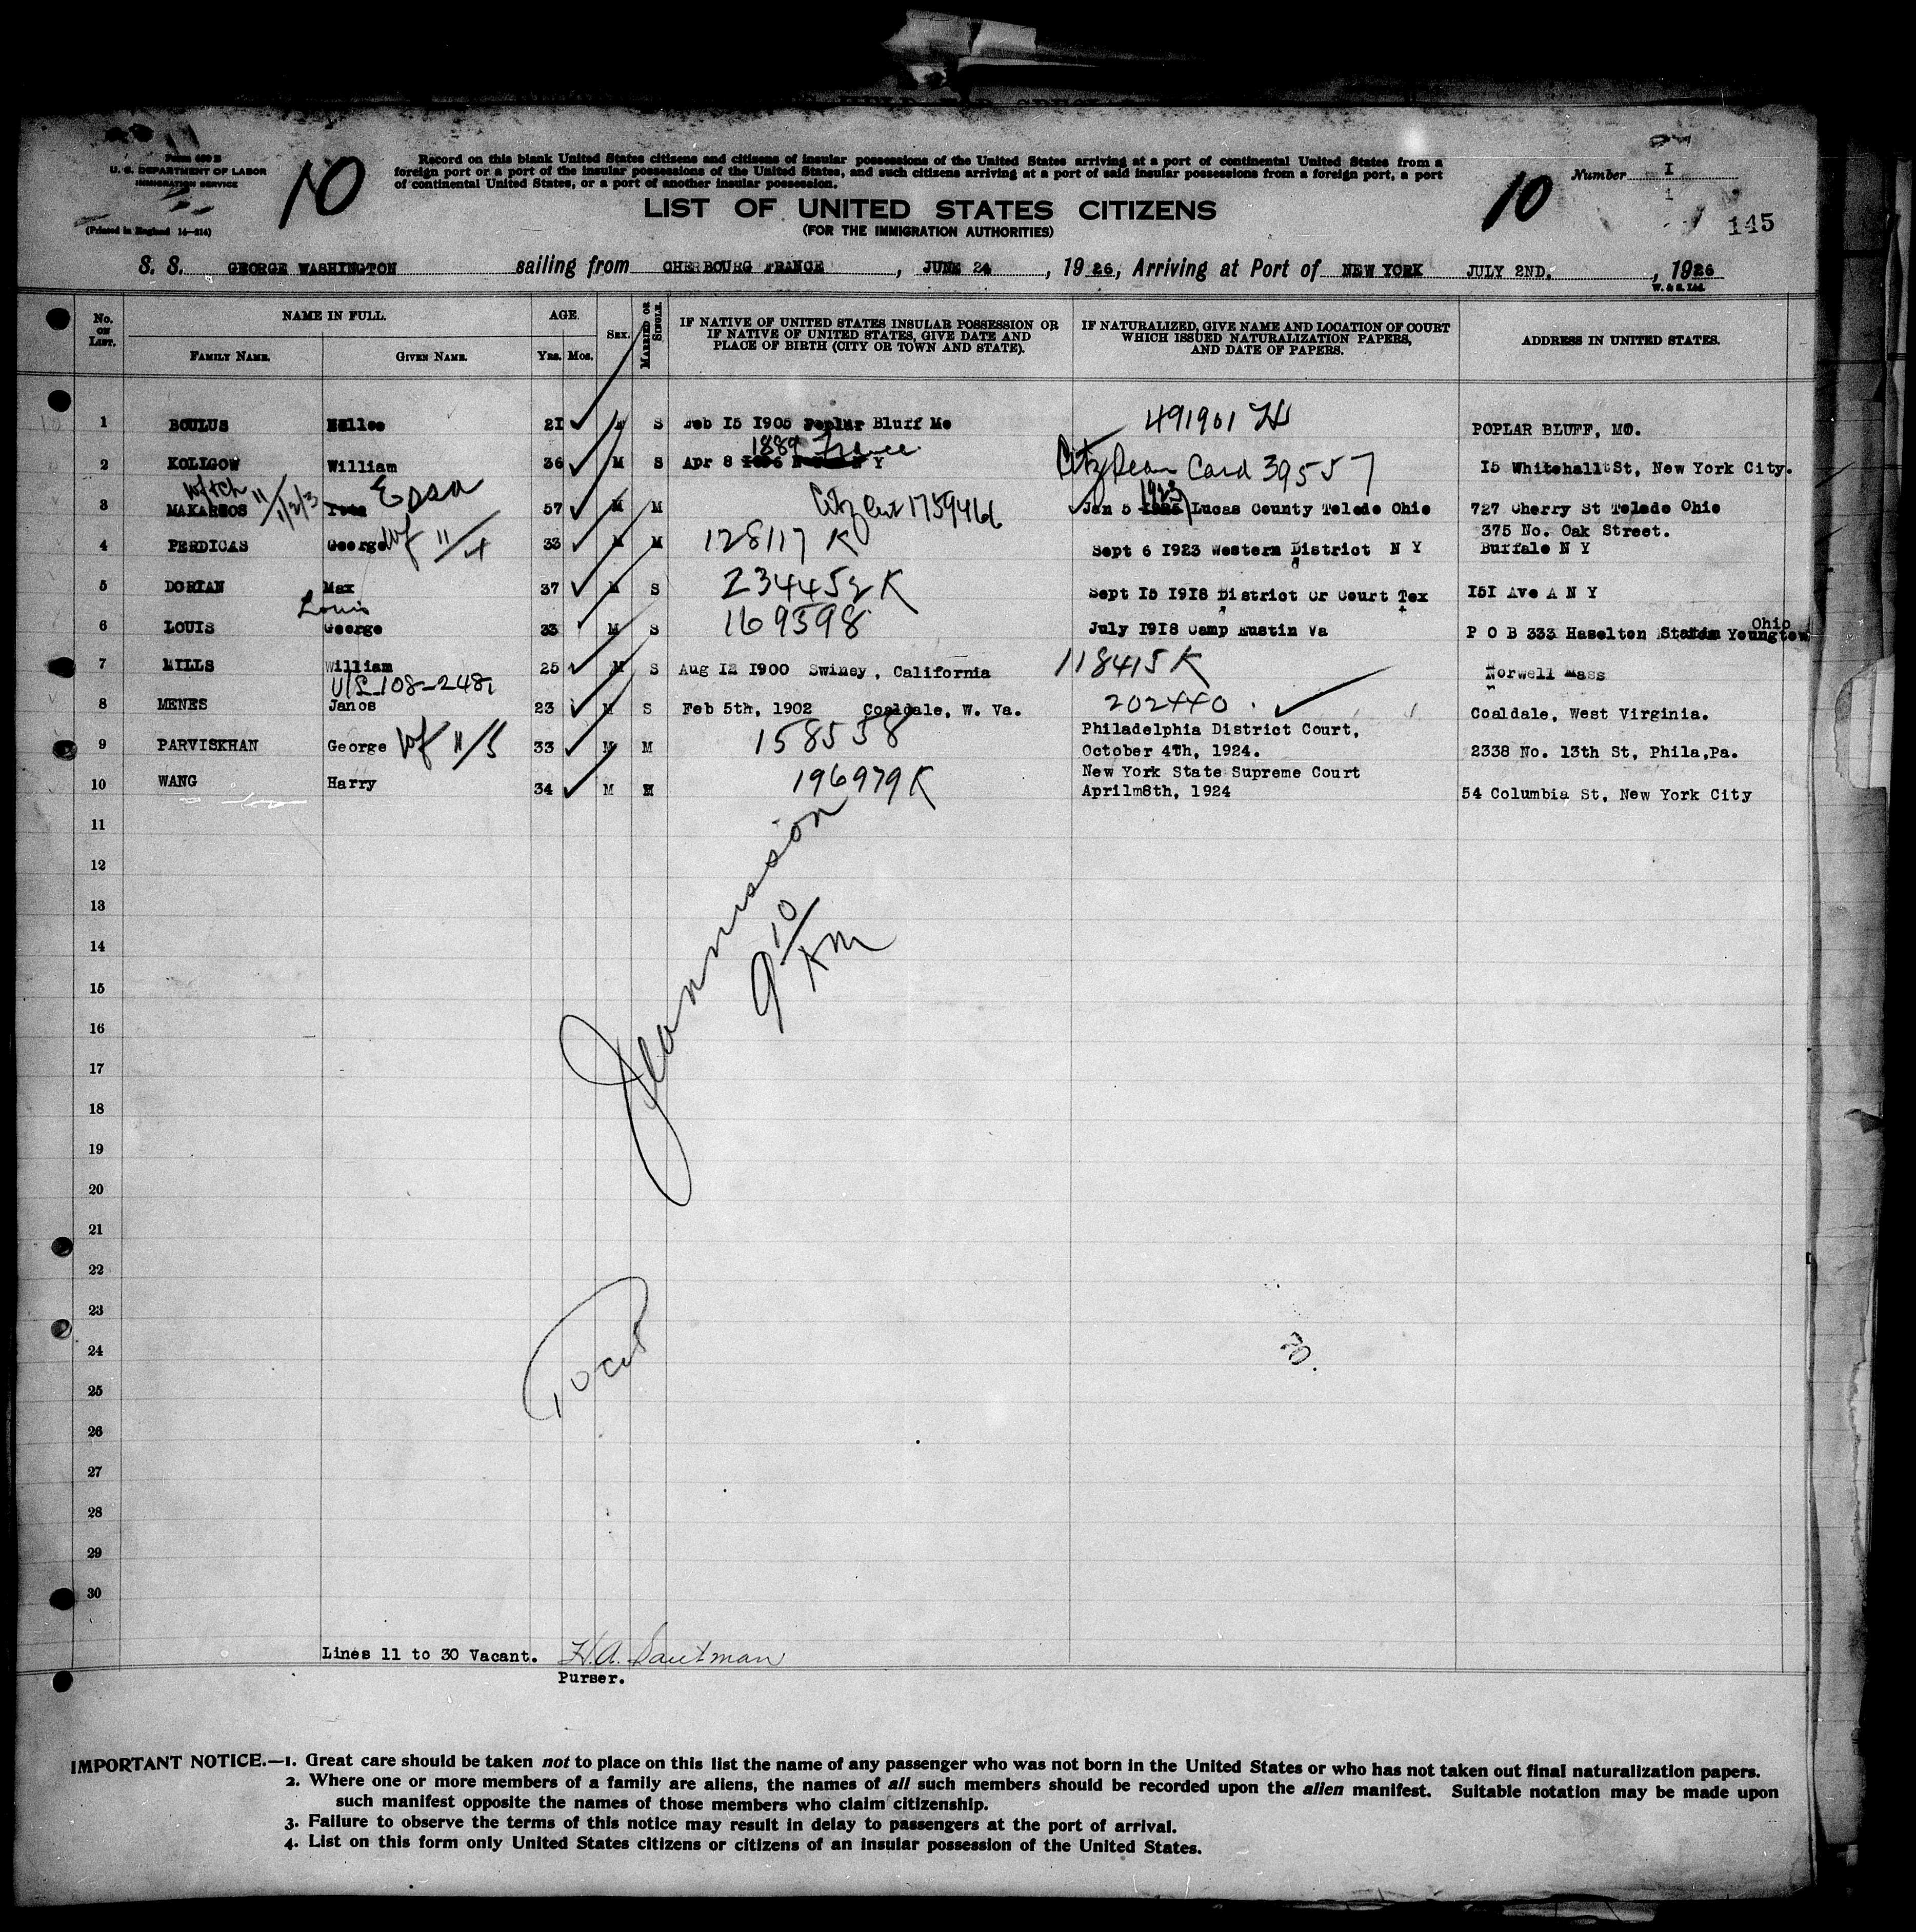 Form 630 B
U. S. DEPARTMENT OF LABOR
IMMIGRATION SERVICE
(Printed in England 14—814)
10
Record on this blank United States citizens and citizens of insular possessions of the United States arriving at a port of continental United States from a
foreign port or a port of the insular possessions of the United States, and such citizens arriving at a port of said insular possessions from a foreign port, a port
of continental United States, or a port of another insular possession.
LIST OF UNITED STATES CITIZENS
(FOR THE IMMIGRATION AUTHORITIES)
10
Number I
1
145
S. S. GEORGE WASHINGTON sailing from CHERBOURG FRANCE, JUNE 24, 1926, Arriving at Port of NEW YORK JULY 2ND., 1926
W. & S. Ltd.
No. ON LIST. NAME IN FULL. FAMILY NAME. GIVEN NAME. AGE. YRS. MOS. SEX. MARRIED OR SINGLE.
IF NATIVE OF UNITED STATES INSULAR POSSESSION OR
IF NATIVE OF UNITED STATES, GIVE DATE AND
PLACE OF BIRTH (CITY OR TOWN AND STATE).
IF NATURALIZED, GIVE NAME AND LOCATION OF COURT
WHICH ISSUED NATURALIZATION PAPERS,
AND DATE OF PAPERS.
ADDRESS IN UNITED STATES.
491901
1 BOULUS 21 S Feb 15 1905 Poplar Bluff Mo POPLAR BLUFF, MO.
1889 France
2 KOLIGOW William 36 M S Apr 8 N Y Card 39557 15 Whitehall St, New York City.
Essa
3 MAKARZOS 11/1/2/3 57 M M 1759466 Jan 5 1923 Lucas County Toledo Ohio 727 Cherry St Toledo Ohio
375 No. Oak Street.
4 PERDICAS George Wf 11/4 33 M M 128117 K Sept 6 1923 Western District N Y Buffalo N Y
5 DORIAN Max 37 M S 234452 K Sept 15 1918 District Cr Court Tex 151 Ave A N Y
Louis
6 LOUIS George 33 M S 169598 July 1918 Camp Eustin Va P O B 333 Haselton Station Youngtown Ohio
7 MILLS William 25 M S Aug 12 1900 Swiney, California 118415 K Norwell Mass
U/S-108-248,
8 MENES Janos 23 M S Feb 5th, 1902 Coaldale, W. Va. 202440 Coaldale, West Virginia.
Philadelphia District Court,
9 PARVISKHAN George Wf 11/5 33 M M 158558 October 4th, 1924. 2338 No. 13th St, Phila,Pa.
New York State Supreme Court
10 WANG Harry 34 M M 196979 K Aprilm8th, 1924 54 Columbia St, New York City
11
12
13
14
15
16
17
18
19
20
21
22
23
24
25
26
27
28
29
30
Lines 11 to 30 Vacant. H.A. Sautman
Purser.
IMPORTANT NOTICE.—1. Great care should be taken not to place on this list the name of any passenger who was not born in the United States or who has not taken out final naturalization papers.
2. Where one or more members of a family are aliens, the names of all such members should be recorded upon the alien manifest. Suitable notation may be made upon
such manifest opposite the names of those members who claim citizenship.
3. Failure to observe the terms of this notice may result in delay to passengers at the port of arrival.
4. List on this form only United States citizens or citizens of an insular possession of the United States.